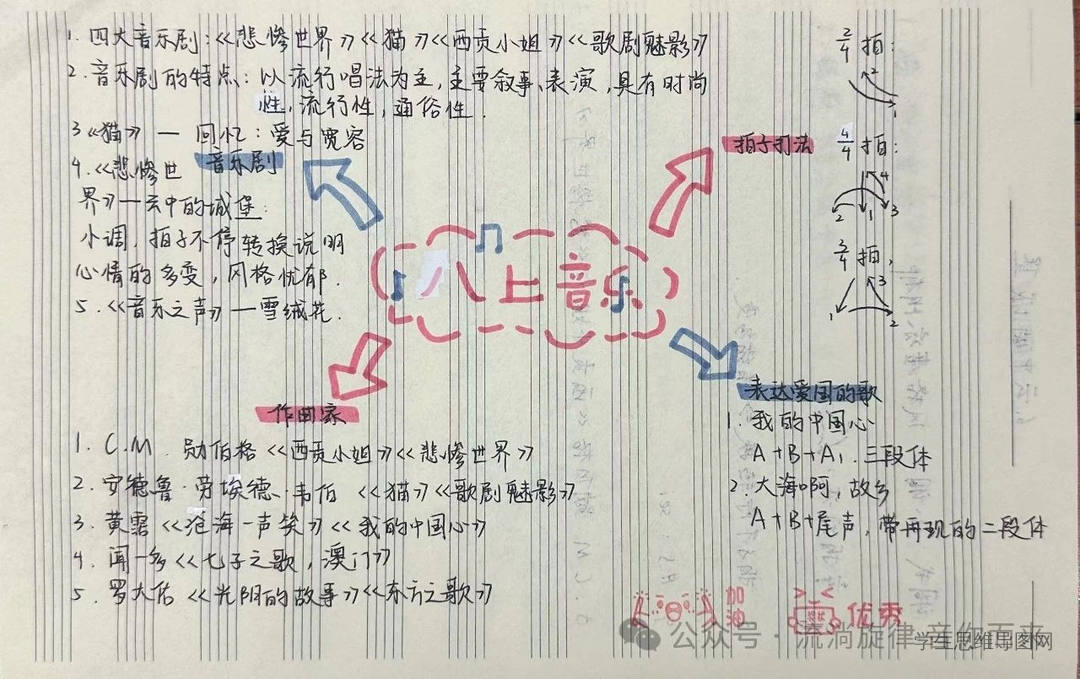 1. 四大音乐剧:《悲惨世界》《猫》《西贡小姐》《歌剧魅影》
2. 音乐剧的特点:以流行唱法为主,主要叙事、表演,具有时尚
性,流行性,通俗性.
3《猫》— 回忆:爱与宽容
4.《悲惨世
界》—云中的城堡:
小调,拍子不停转换说明
心情的多变,风格忧郁.
5.《音乐之声》—雪绒花.
音乐剧
拍子打法
2/4 拍:
2
1
4/4 拍:
4
2 1 3
3/4 拍,
3
1 2
八上音乐
作曲家
1. C.M. 勋伯格《西贡小姐》《悲惨世界》
2. 安德鲁·劳埃德·韦伯 《猫》《歌剧魅影》
3. 黄霑《沧海一声笑》《我的中国心》
4. 闻一多《七子之歌,澳门》
5. 罗大佑《光阴的故事》《东方之歌》
表达爱国的歌
1. 我的中国心
A+B+A1. 三段体
2. 大海啊,故乡
A+B+尾声,带再现的二段体
加油
优秀
公众号·流淌旋律 音你而来
学生思维导图网